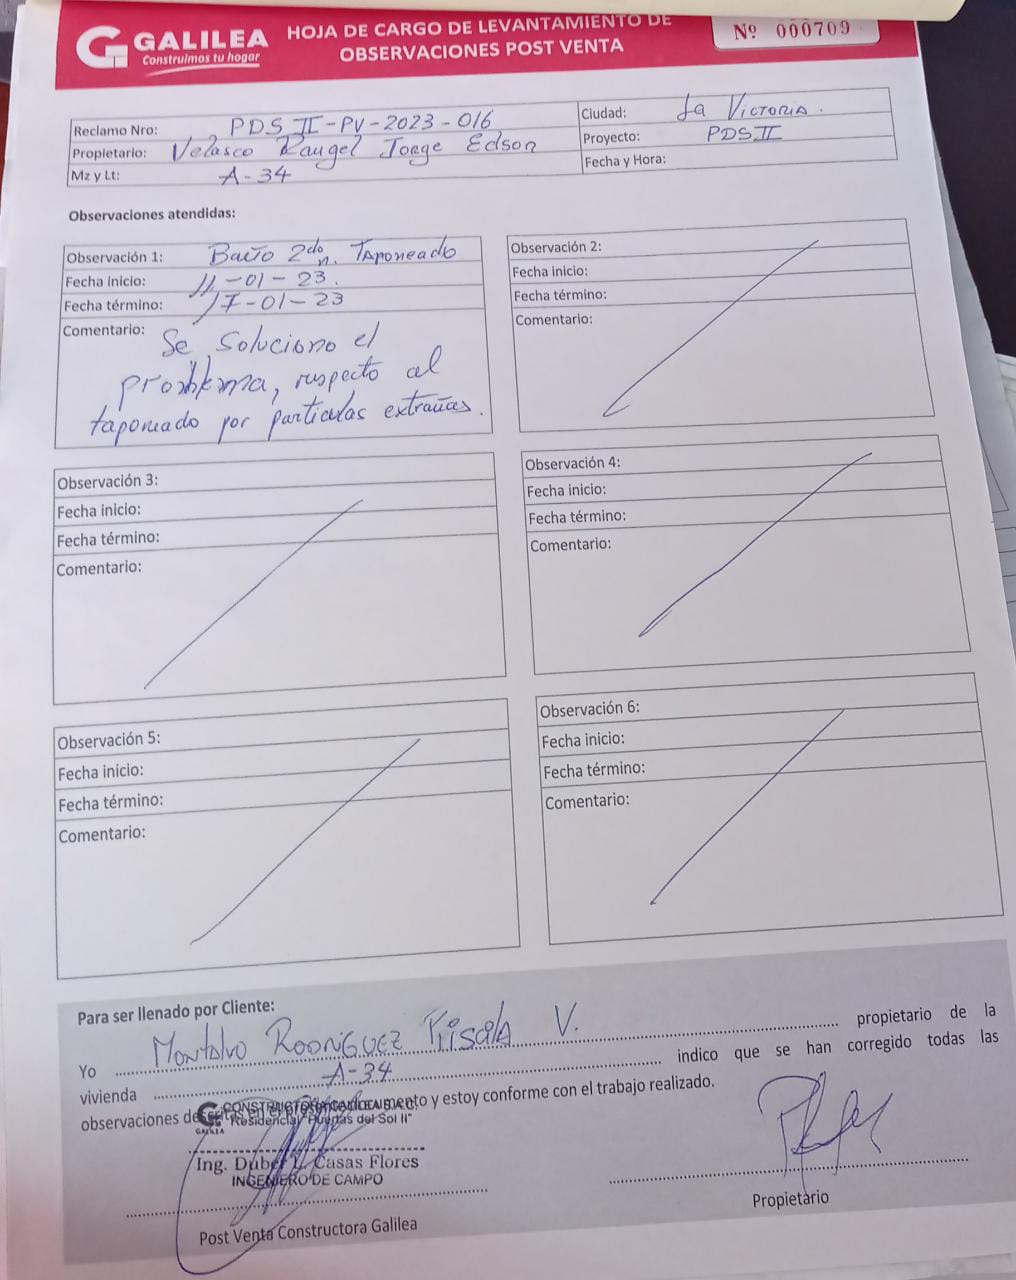 GALILEA
Construimos tu hogar
HOJA DE CARGO DE LEVANTAMIENTO DE
OBSERVACIONES POST VENTA
Nº 000709
Reclamo Nro: PDS II-PV-2023-016
Ciudad: La Victoria.
Propietario: Velasco Rangel Jorge Edson
Proyecto: PDS II
Mz y Lt: A-34
Fecha y Hora:
Observaciones atendidas:
Observación 1: Baño 2do n. Taponeado
Fecha inicio: 11-01-23.
Fecha término: 17-01-23
Comentario: Se soluciono el
problema, respecto al
taponeado por particulas extrañas.
Observación 2:
Fecha inicio:
Fecha término:
Comentario:
Observación 3:
Fecha inicio:
Fecha término:
Comentario:
Observación 4:
Fecha inicio:
Fecha término:
Comentario:
Observación 5:
Fecha inicio:
Fecha término:
Comentario:
Observación 6:
Fecha inicio:
Fecha término:
Comentario:
Para ser llenado por Cliente:
Yo Montalvo Rodriguez V. propietario de la
vivienda A-34 indico que se han corregido todas las
observaciones descritas en el presente documento y estoy conforme con el trabajo realizado.
CONSTRUCTORA GALILEA S.A.C.
Residencial "Puertas del Sol II"
GALILEA
Ing. Duber L. Casas Flores
INGENIERO DE CAMPO
Post Venta Constructora Galilea
Propietario